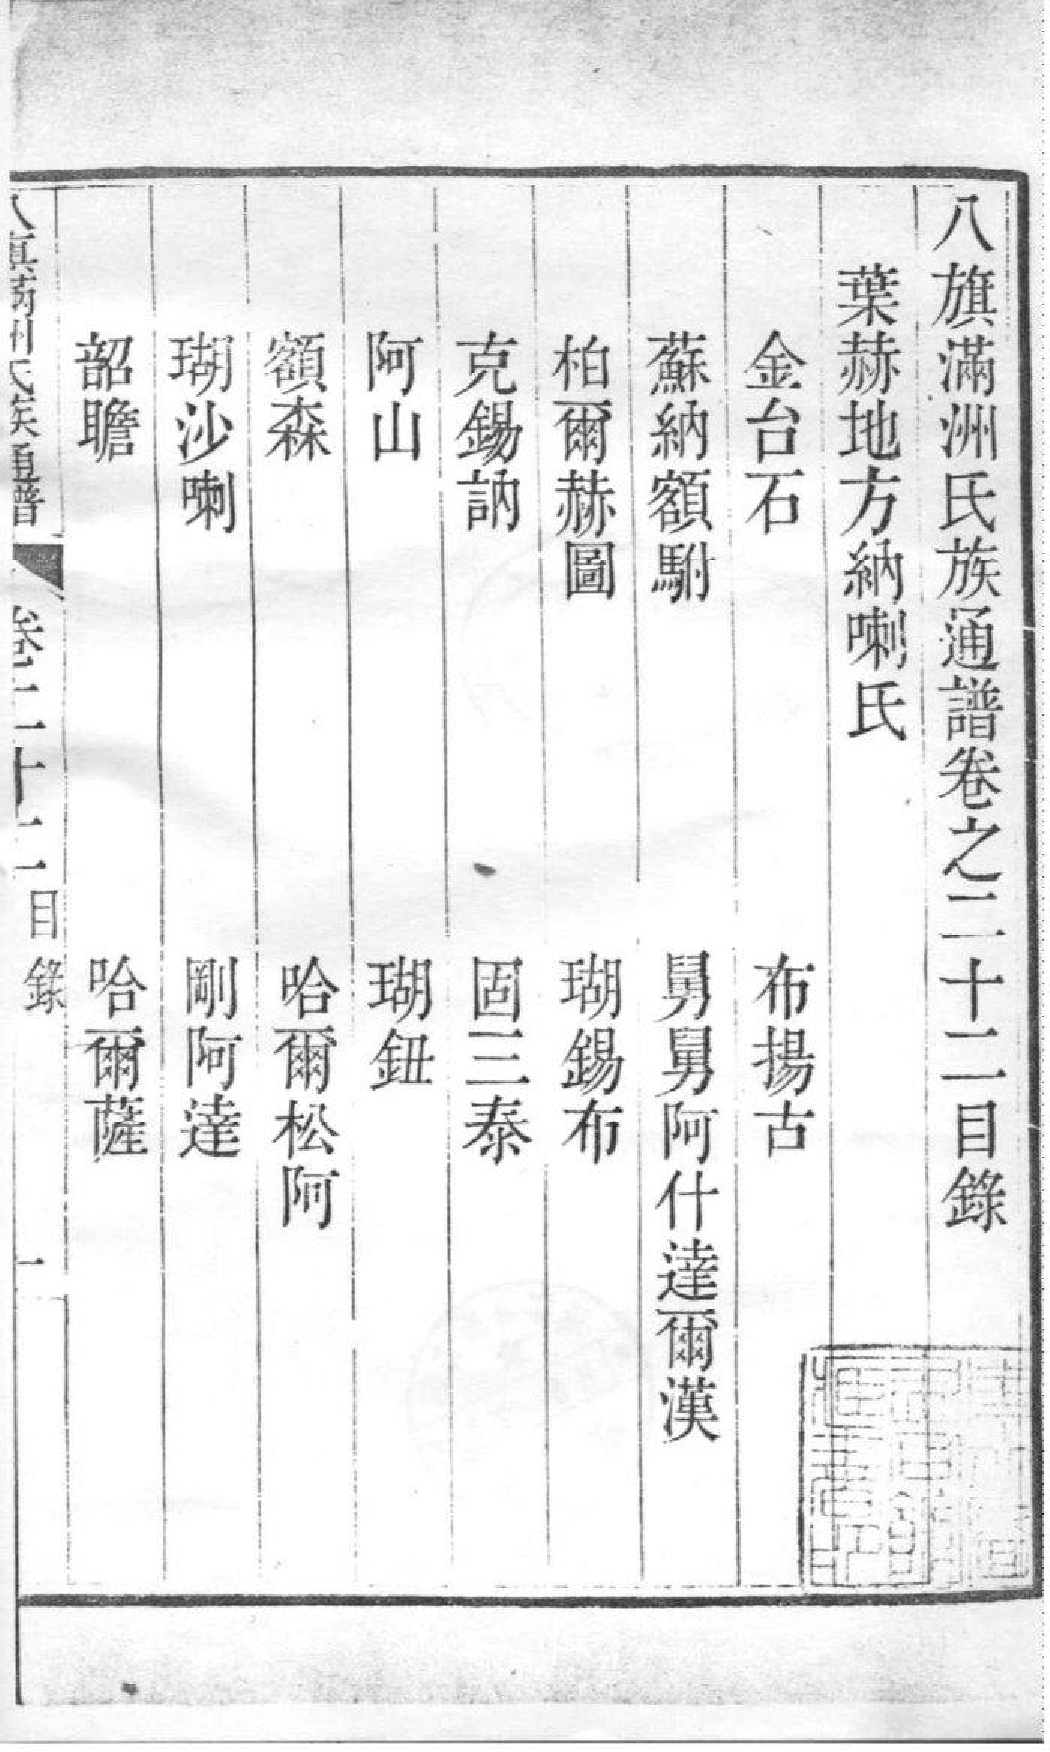 八旗滿洲氏族通譜卷之二十二目錄
葉赫地方納喇氏
金台石 布揚古
蘇納額駙 舅舅阿什達爾漢
柏爾赫圖 瑚錫布
克錫訥 固三泰
阿山 瑚鈕
額森 哈爾松阿
瑚沙喇 剛阿達
韶瞻 哈爾薩
八旗滿洲氏族通譜 卷二十二 目錄 一